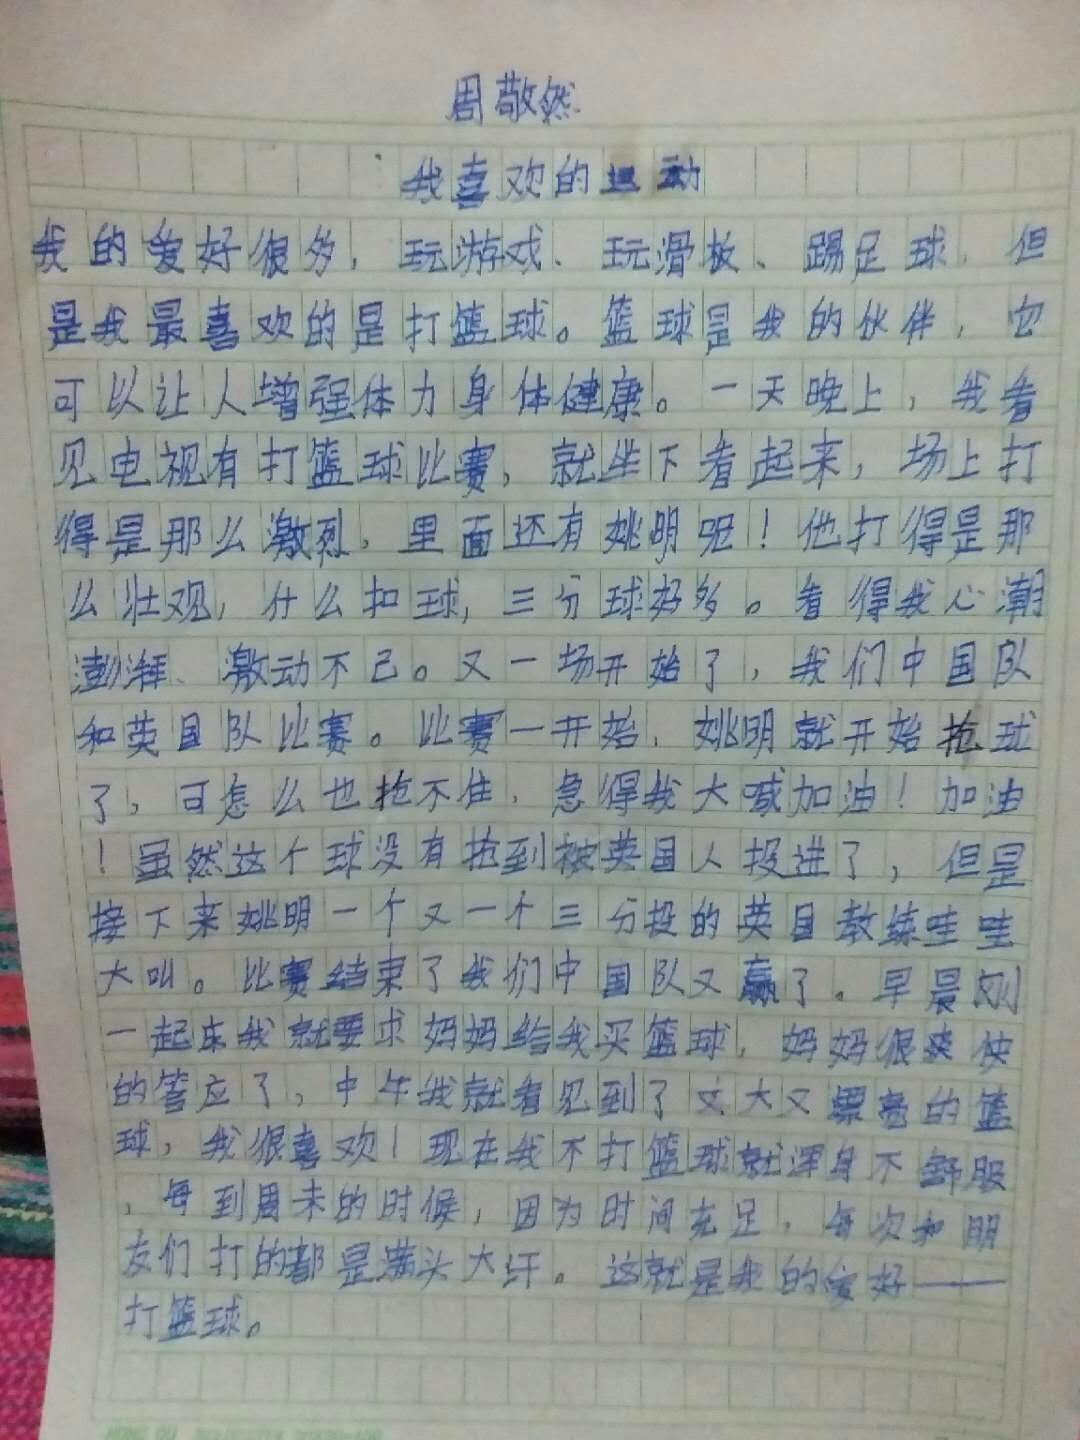 周敬然
我喜欢的运动
我的爱好很多，玩游戏、玩滑板、踢足球，但
是我最喜欢的是打篮球。篮球是我的伙伴，它
可以让人增强体力身体健康。一天晚上，我看
见电视有打篮球比赛，就坐下看起来，场上打
得是那么激烈，里面还有姚明呢！他打得是那
么壮观，什么扣球，三分球好多。看得我心潮
澎湃、激动不己。又一场开始了，我们中国队
和英国队比赛。比赛一开始，姚明就开始抢球
了，可怎么也抢不住，急得我大喊加油！加油
！虽然这个球没有抢到被英国人投进了，但是
接下来姚明一个又一个三分投的英国教练哇哇
大叫。比赛结束了我们中国队又赢了。早晨刚
一起床我就要求妈妈给我买篮球，妈妈很爽快
的答应了，中午我就看见到了又大又漂亮的篮
球，我很喜欢！现在我不打篮球就浑身不舒服
，每到周末的时候，因为时间充足，每次和朋
友们打的都是满头大汗。这就是我的爱好——
打篮球。